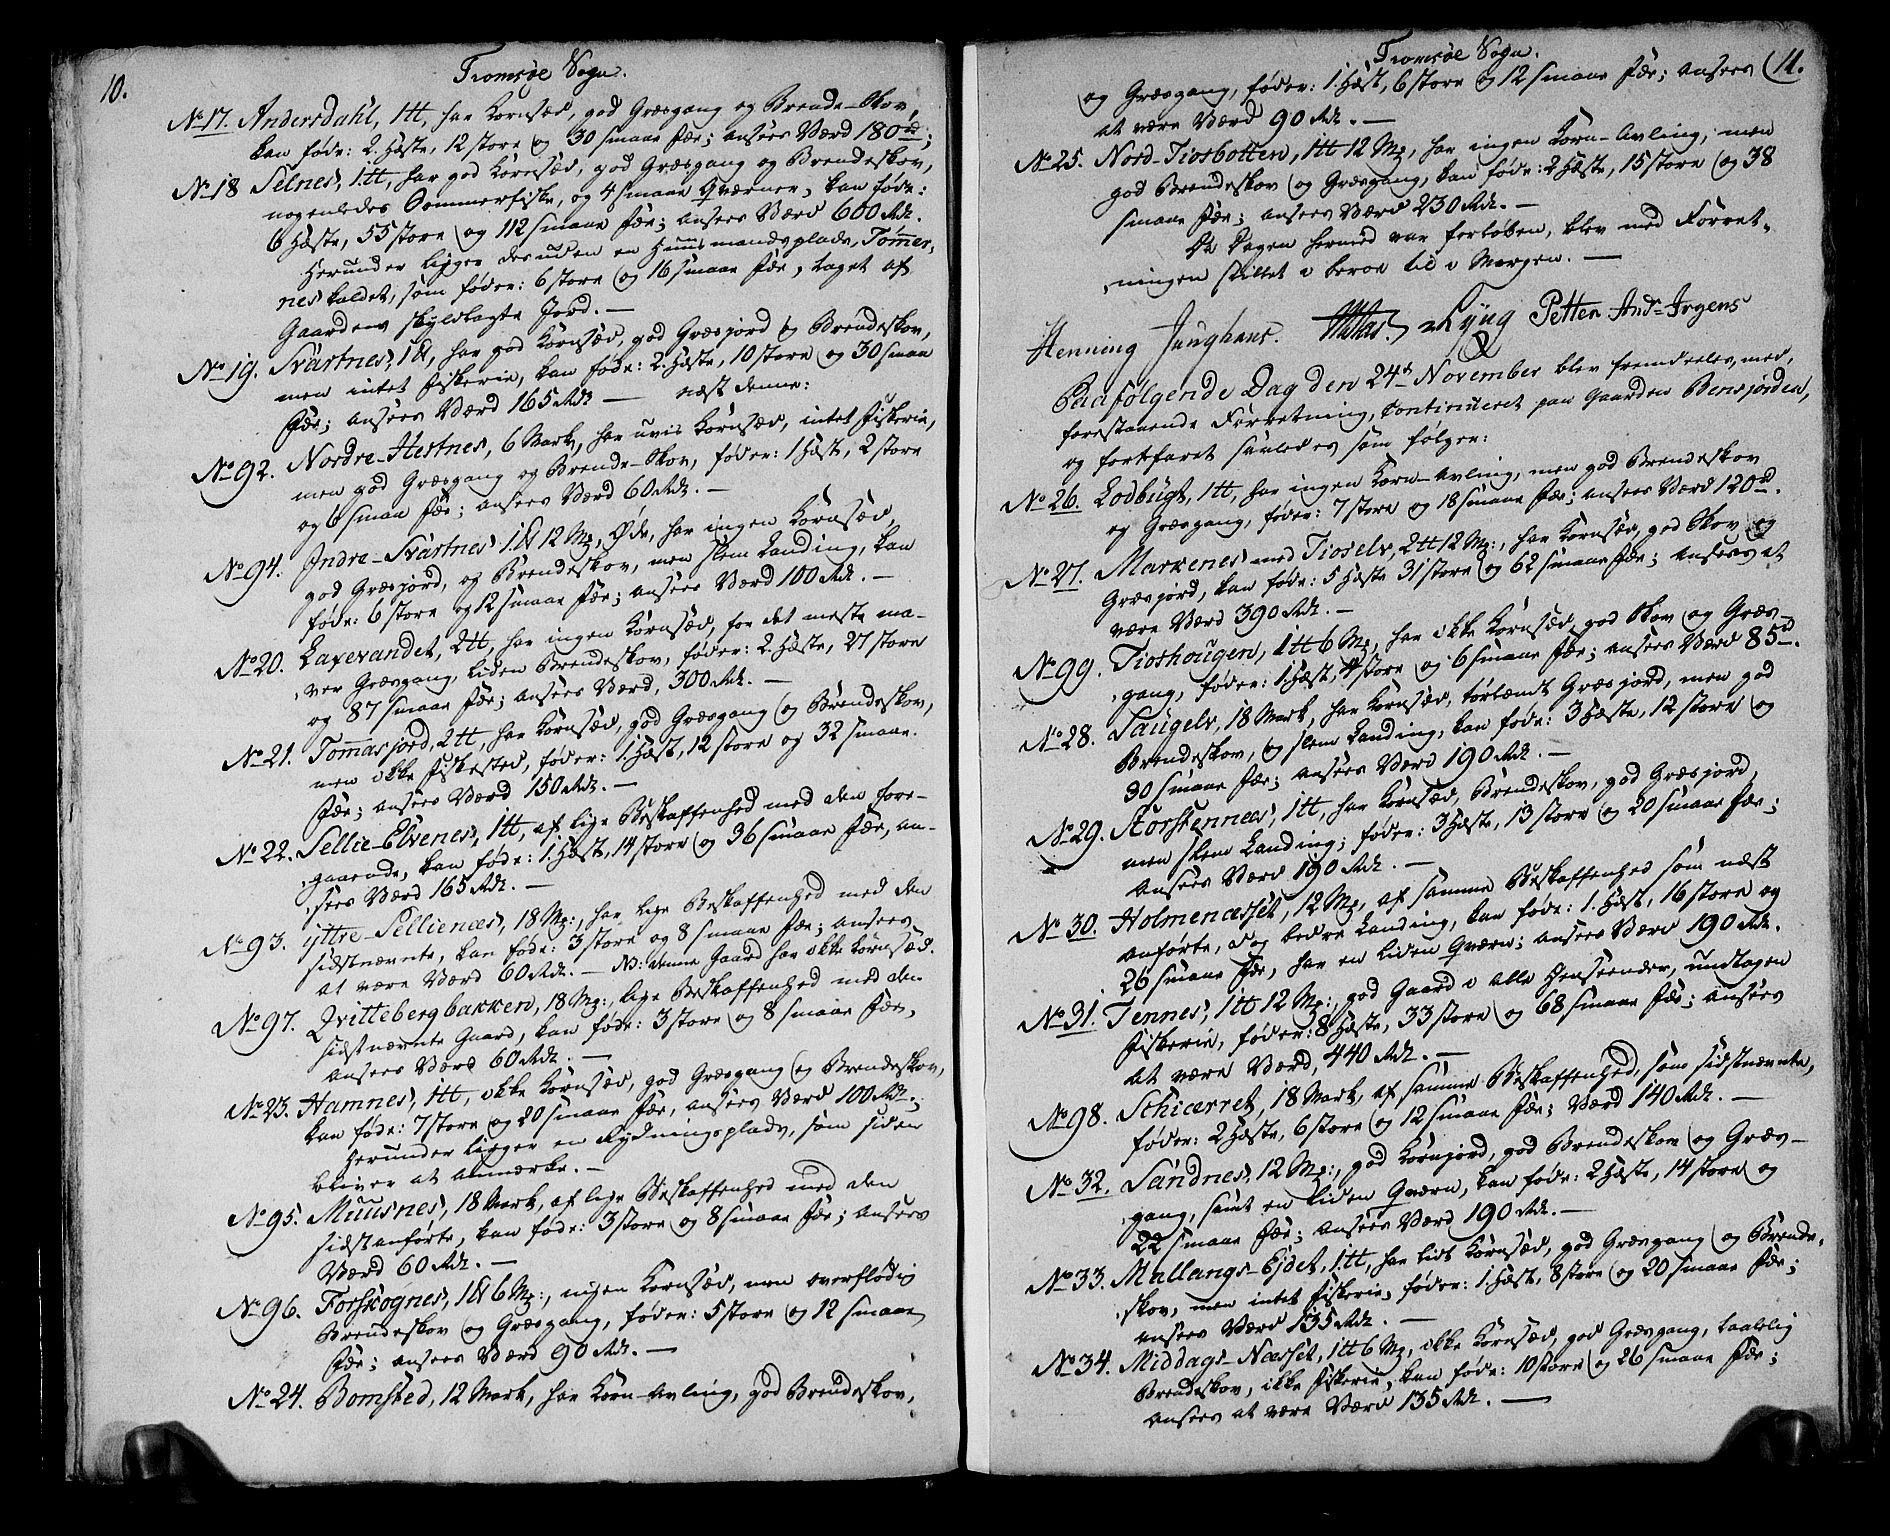 10.
Tromsøe Sogn.
No 17. Andersdahl, 1 tt, har Kornsæd, god Græsgang og Brende-Skov,
kan føde: 2 Hæste, 12 store og 30 smaae Fæe; ansees Værd 180 rd;
No 18 Selnes, 1 tt, har god Kornsæd, god Græsgang og Brendeskov,
nogenledes Sommerfiske, og 4 smaae Qværner, kan føde:
6 Hæste, 55 store og 112 smaae Fæe; ansees Værd 600 Rdr.
Herunder ligger desuden en Huusmandsplads, Tømmer,
nes kaldet, som føder: 6 store og 16 smaae Fæe, taget af
Gaardens skyldlagte Jord. —
No 19. Svartnes, 1 tt, har god Kornsæd, god Græsjord og Brendeskov,
men intet Fiskerie, kan føde: 2 Hæste, 10 store og 30 smaae
Fæe; ansees Værd 165 Rdr — næst denne:
No 92. Nordre-Hestnes, 6 Mark, har uvis Kornsæd, intet Fiskerie,
men god Græsgang og Brende-Skov, føder: 1 Hæst, 2 store
og 6 smaae Fæe; ansees Værd 60 Rdr. —
No 94. Indre-Svartnes 1 tt 12 Mk, Øde, har ingen Kornsæd,
god Græsjord, og Brendeskov, men slem Landing, kan
føde: 6 store og 12 smaae Fæe; ansees Værd 100 Rdr. —
No 20. Laxevandet, 2 tt, har ingen Kornsæd, for det meste ma-
ver Græsgang, liden Brendeskov, føder: 2 Hæste, 27 store
og 87 smaae Fæe; ansees Værd, 300 Rdr. —
No 21. Tommasjord, 2 tt, har Kornsæd, god Græsgang og Brendeskov,
men ikke Fiskested, føder: 1. Hæst, 12 store og 32 smaae
Fæe; ansees Værd 150 Rdr. —
No 22. Sellie-Elvenes, 1 tt, af lige Beskaffenhed med den fore-
gaaende, kan føde: 1. Hæst, 14 store og 36 smaae Fæe, an-
sees Værd 165 Rdr. —
No 93. Yttre-Sellienæs, 18 Mk:, har lige Beskaffenhed med den
sidstnævnte, kan føde: 3 store og 8 smaae Fæe; ansees
at være Værd 60 Rdr. — NB: denne Gaard har ikke Kornsæd.
No 97. Qvittebergbakken, 18 Mk:, lige Beskaffenhed med den
sidstnævnte Gaard, kan føde: 3 store og 8 smaae Fæe,
ansees Værd 60 Rdr. —
No 23. Hamnes, 1 tt, ikke Kornsæd, god Græsgang og Brendeskov,
kan føde: 7 store og 20 smaae Fæe, ansees Værd 100 Rdr.;
herunder ligger en Rydningsplads, som siden
bliver at anmærke. —
No 95. Muusnes, 18 Mark, af lige Beskaffenhed med den
sidstanførte, kan føde: 3 store og 8 smaae Fæe; ansees
Værd 60 Rdr. —
No 96. Forskognes, 1 tt 6 Mk:, ingen Kornsæd, men overflødig
Brendeskov og Græsgang, føder: 5 store og 12 smaae
Fæe; ansees Værd 90 Rdr. —
No 24. Bomsted, 12 Mark, har Korn-Avling, god Brendeskov,
Tromsøe Sogn.
11.
og Græsgang, føder: 1. Hæst, 6 store og 12 smaae Fæe; ansees
at være Værd 90 Rdr. —
No 25. Nord-Tiosbotten, 1 tt 12 Mk, har ingen Korn-Avling, men
god Brendeskov og Græsgang, kan føde: 2 Hæste, 15 store og 38
smaae Fæe; ansees Værd 230 Rdr. —
Da Dagen hermed var forløben, blev med Forret-
ningen stillet i beroe til i Morgen. —
Henning Junghans. Lyng Petter And Argens
Paafølgende Dag den 24de November blev fremdeeles, med
forestaaende Forretning, Continueret paa Gaarden Bensjorden,
og fortfaret saaledes som følger:
No 26. Lodbugt, 1 tt, har ingen Korn-Avling, men god Brendeskov
og Græsgang, føder: 7 store og 18 smaae Fæe; ansees Værd 120 rd.
No 27. Markenes med Tioselv, 2 tt 12 Mk:, har Kornsæd, god Skov og
Græsjord, kan føde: 5 Hæste 31 store og 62 smaae Fæe; ansees at
være Værd 390 Rdr. —
No 99. Tioshougen, 1 tt 6 Mk, har ikke Kornsæd, god Skov og Græs-
gang, føder: 1. Hæst, 4 store og 6 smaae Fæe; ansees Værd 85 rd.
No 28. Saugelv, 18 Mark, har Kornsæd, tørlændt Græsjord, men god
Brendeskov, og slem Landing, kan føde: 3 Hæste, 12 store og
30 smaae Fæe; ansees Værd 190 Rdr. —
No 29. Storstennæs, 1 tt, har Kornsæd, Brendeskov, god Græsjord,
men slem Landing; føder: 3 Hæste, 13 store og 20 smaae Fæe;
ansees Værd 190 Rdr. —
No 30. Holmenæsset, 12 Mk, af samme Beskaffenhed som næst
anførte, dog bedre Landing, kan føde: 1. Hæst, 16 store og
26 smaae Fæe, har en liden Qværn; ansees Værd 190 Rdr.
No 31. Tennes, 1 tt 12 Mk:, god Gaard i alle Henseender, undtagen
Fiskerie, føder: 8 Hæste, 33 store og 68 smaae Fæe; ansees
at være Værd, 440 Rdr. —
No 98. Schicerret, 18 Mark, af samme Beskaffenhed, som sidstnævnte,
føder: 2 Hæste, 6 store og 12 smaae Fæe; Værd 140 Rdr. —
No 32. Sandnes, 12 Mk:, god Kornjord, god Brendeskov og Græs-
gang, samt en liden Qværn, kan føde: 2 Hæste, 14 store og
22 smaae Fæe; ansees Værd 190 Rdr. —
No 33. Mallangs-Ejdet, 1. tt, har lidt Kornsæd, god Græsgang og Brende-
skov, men intet Fiskerie, føder: 1. Hæst, 8 store og 20 smaae Fæe;
ansees Værd 135 Rdr. —
No 34. Middags-Næsset, 1 tt 6 Mk, ikke Kornsæd, god Græsgang, taalelig
Brendeskov, ikke Fiskerie, kan føde: 10 store og 26 smaae Fæe;
ansees at være Værd 135 Rdr. —